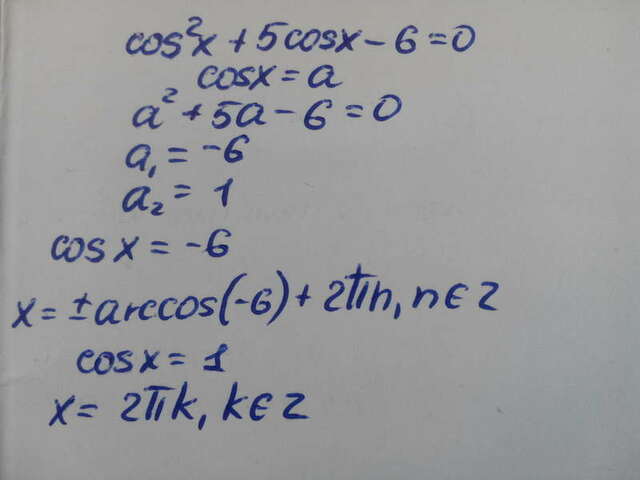 cos²x + 5cosx - 6 = 0
cosx = a
a² + 5a - 6 = 0
a₁ = -6
a₂ = 1
cos x = -6
x = ± arccos(-6) + 2πn, n ∈ Z
cos x = 1
x = 2πk, k ∈ Z